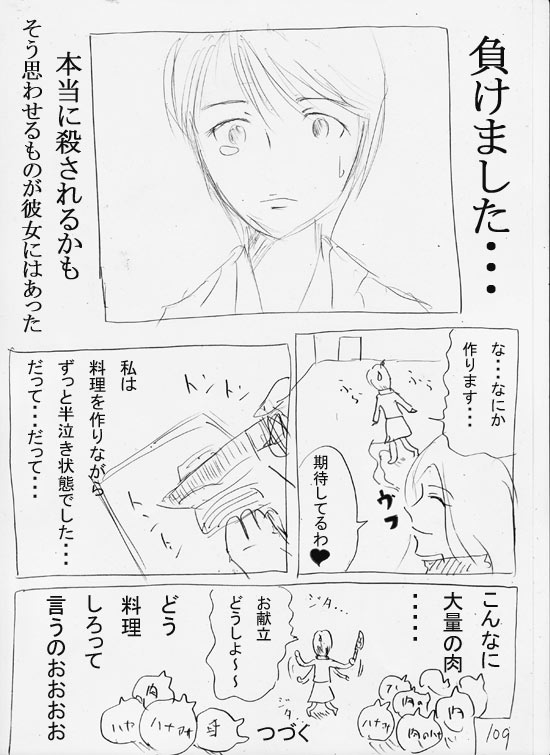 負けました・・・
本当に殺されるかも
そう思わせるものが彼女にはあった
な・・・なにか
作ります・・・
ふら
ふら
ウフ
期待してるわ♥
トントン
私は
料理を作りながら
ずっと半泣き状態でした・・・
だって・・・だって・・・
こんなに
大量の肉
・・・・・
ジタ…
お献立
どうしよ～～
ジタ
どう
料理
しろって
言うのおおおお
肉
ハナ
肉
肉
つづく
109